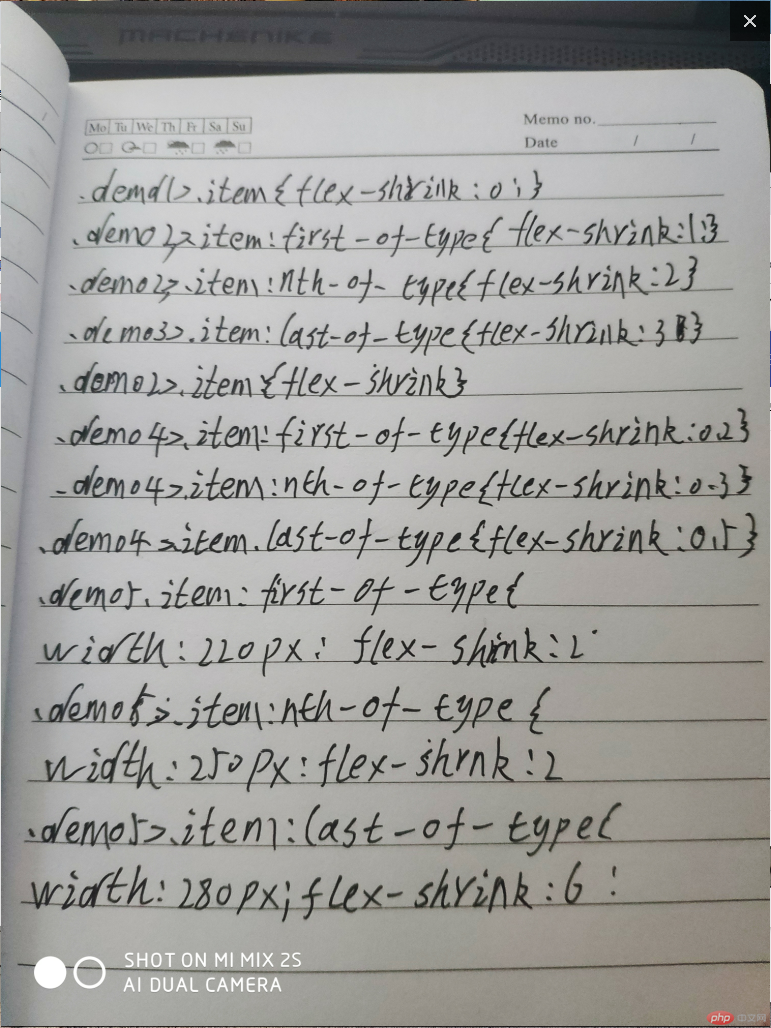 MACHENIKE
Mo Tu We Th Fr Sa Su
Memo no.
Date / /
.demo1>.item{flex-shrink:0;}
.demo2>.item:first-of-type{flex-shrink:1;}
.demo2>.item:nth-of-type{flex-shrink:2}
.demo3>.item:last-of-type{flex-shrink:3}
.demo2>.item{flex-shrink}
.demo4>.item:first-of-type{flex-shrink:0.2}
.demo4>.item:nth-of-type{flex-shrink:0.3}
.demo4>item.last-of-type{flex-shrink:0.5}
.demo5.item:first-of-type{
width:220px: flex-shrink:2
.demo5>.item:nth-of-type{
width:250px:flex-shrnk:2
.demo5>.item:last-of-type{
width:280px;flex-shrink:6;
SHOT ON MI MIX 2S
AI DUAL CAMERA
php中文网